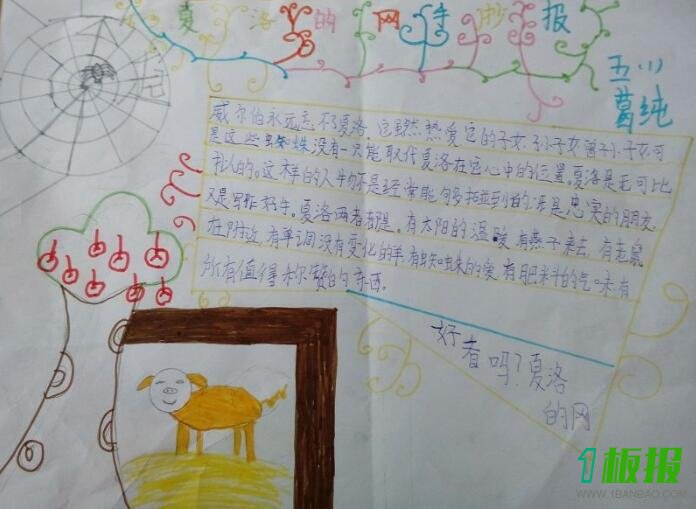 夏洛的网手抄报
五(1)
葛纯
威尔伯永远忘不了夏洛,它虽然热爱它的子女,孙子女曾孙子女,可
是这些蜘蛛没有一只能取代夏洛在它心中的位置。夏洛是无可比
拟的。这样的人物不是经常能够多碰到的:既是忠实的朋友,
又是写作好手。夏洛两者都是。有太阳的温暖,有燕子来去,有老鼠
在附近,有单调没有变化的羊,有蜘蛛的爱,有肥料的气味,有
所有值得称赞的东西。
好看吗?夏洛
的网
1板报
WWW.1BANBAO.COM